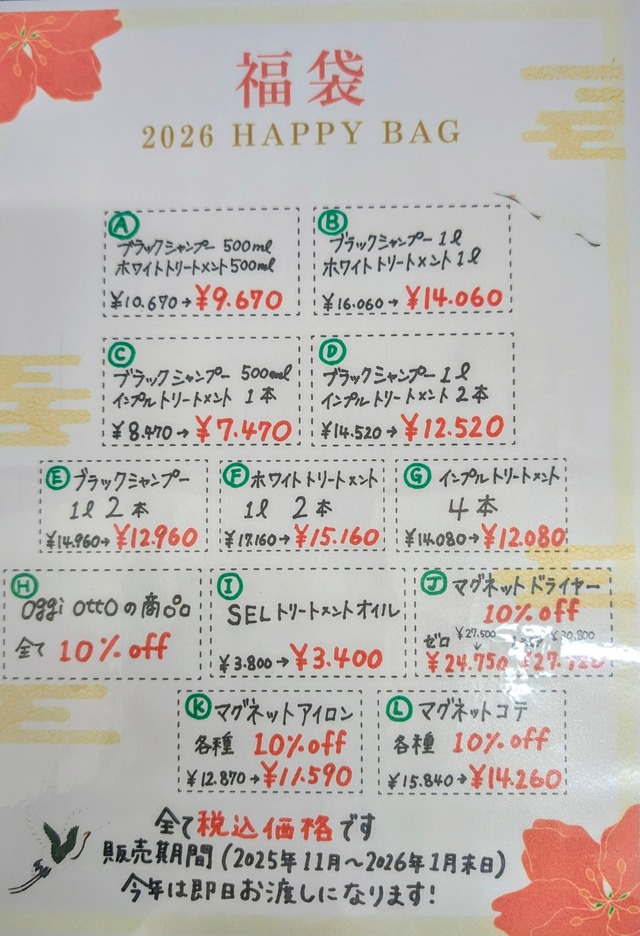 福袋
2026 HAPPY BAG
Ⓐ
ブラックシャンプー 500ml
ホワイトトリートメント500ml
¥10.670→¥9.670
Ⓑ
ブラックシャンプー 1ℓ
ホワイトトリートメント 1ℓ
¥16.060→¥14.060
Ⓒ
ブラックシャンプー 500ml
インプルトリートメント 1本
¥8.470→¥7.470
Ⓓ
ブラックシャンプー 1ℓ
インプルトリートメント 2本
¥14.520→¥12.520
Ⓔ ブラックシャンプー
1ℓ 2本
¥14.960→¥12.960
Ⓕ ホワイトトリートメント
1ℓ 2本
¥17.160→¥15.160
Ⓖ インプルトリートメント
4本
¥14.080→¥12.080
Ⓗ
oggi ottoの商品
全て 10%off
Ⓘ
SELトリートメントオイル
¥3.800→¥3.400
Ⓙ マグネットドライヤー
10%off
ゼロ ¥27.500 ¥30.800
↓
¥24.750 ¥27.720
Ⓚ マグネットアイロン
各種 10%off
¥12.870→¥11.590
Ⓛ マグネットコテ
各種 10%off
¥15.840→¥14.260
全て税込価格です
販売期間(2025年11月~2026年1月末日)
今年は即日お渡しになります!